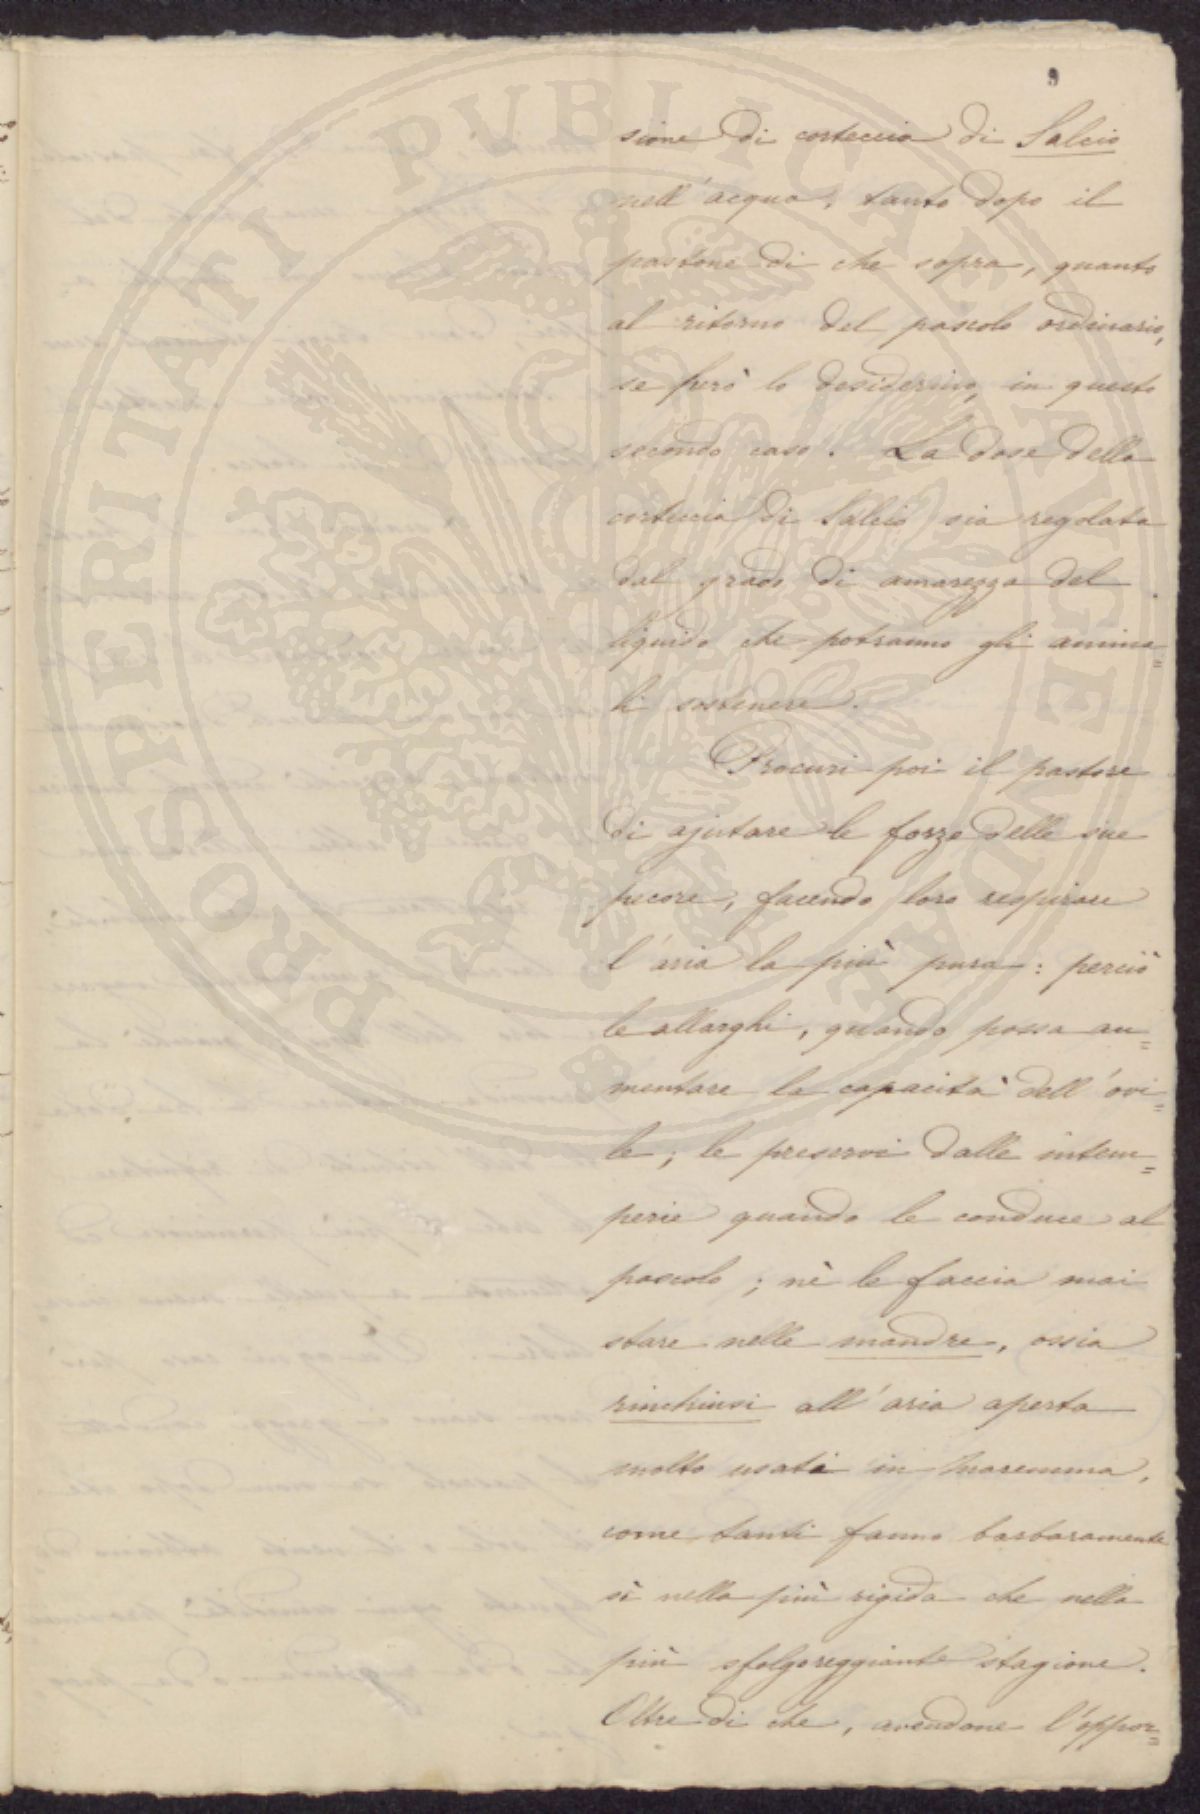 9
sione di corteccia di Salcio
nell'acqua, tanto dopo il
pastone di che sopra, quanto
al ritorno del pascolo ordinario,
se però lo desiderino, in questo
secondo caso. La dose della
corteccia di Salcio sia regolata
dal grado di amarezza del
liquido che potranno gli anima=
li sostenere.
Procuri poi il pastore
di ajutare le forze delle sue
pecore, facendo loro respirare
l'aria la più pura: perciò
le allarghi, quando possa au=
mentare la capacità dell'ovi=
le; le preservi dalle intem=
perie quando le conduce al
pascolo; nè le faccia mai
stare nelle mandre, ossia
rinchiusi all'aria aperta
molto usati in Maremma,
come tanti fanno barbaramente
sì nella più rigida che nella
più sfolgoreggiante stagione.
Oltre di che, avendone l'oppor=
PROSPERITATI PUBLICAE AUGENDAE